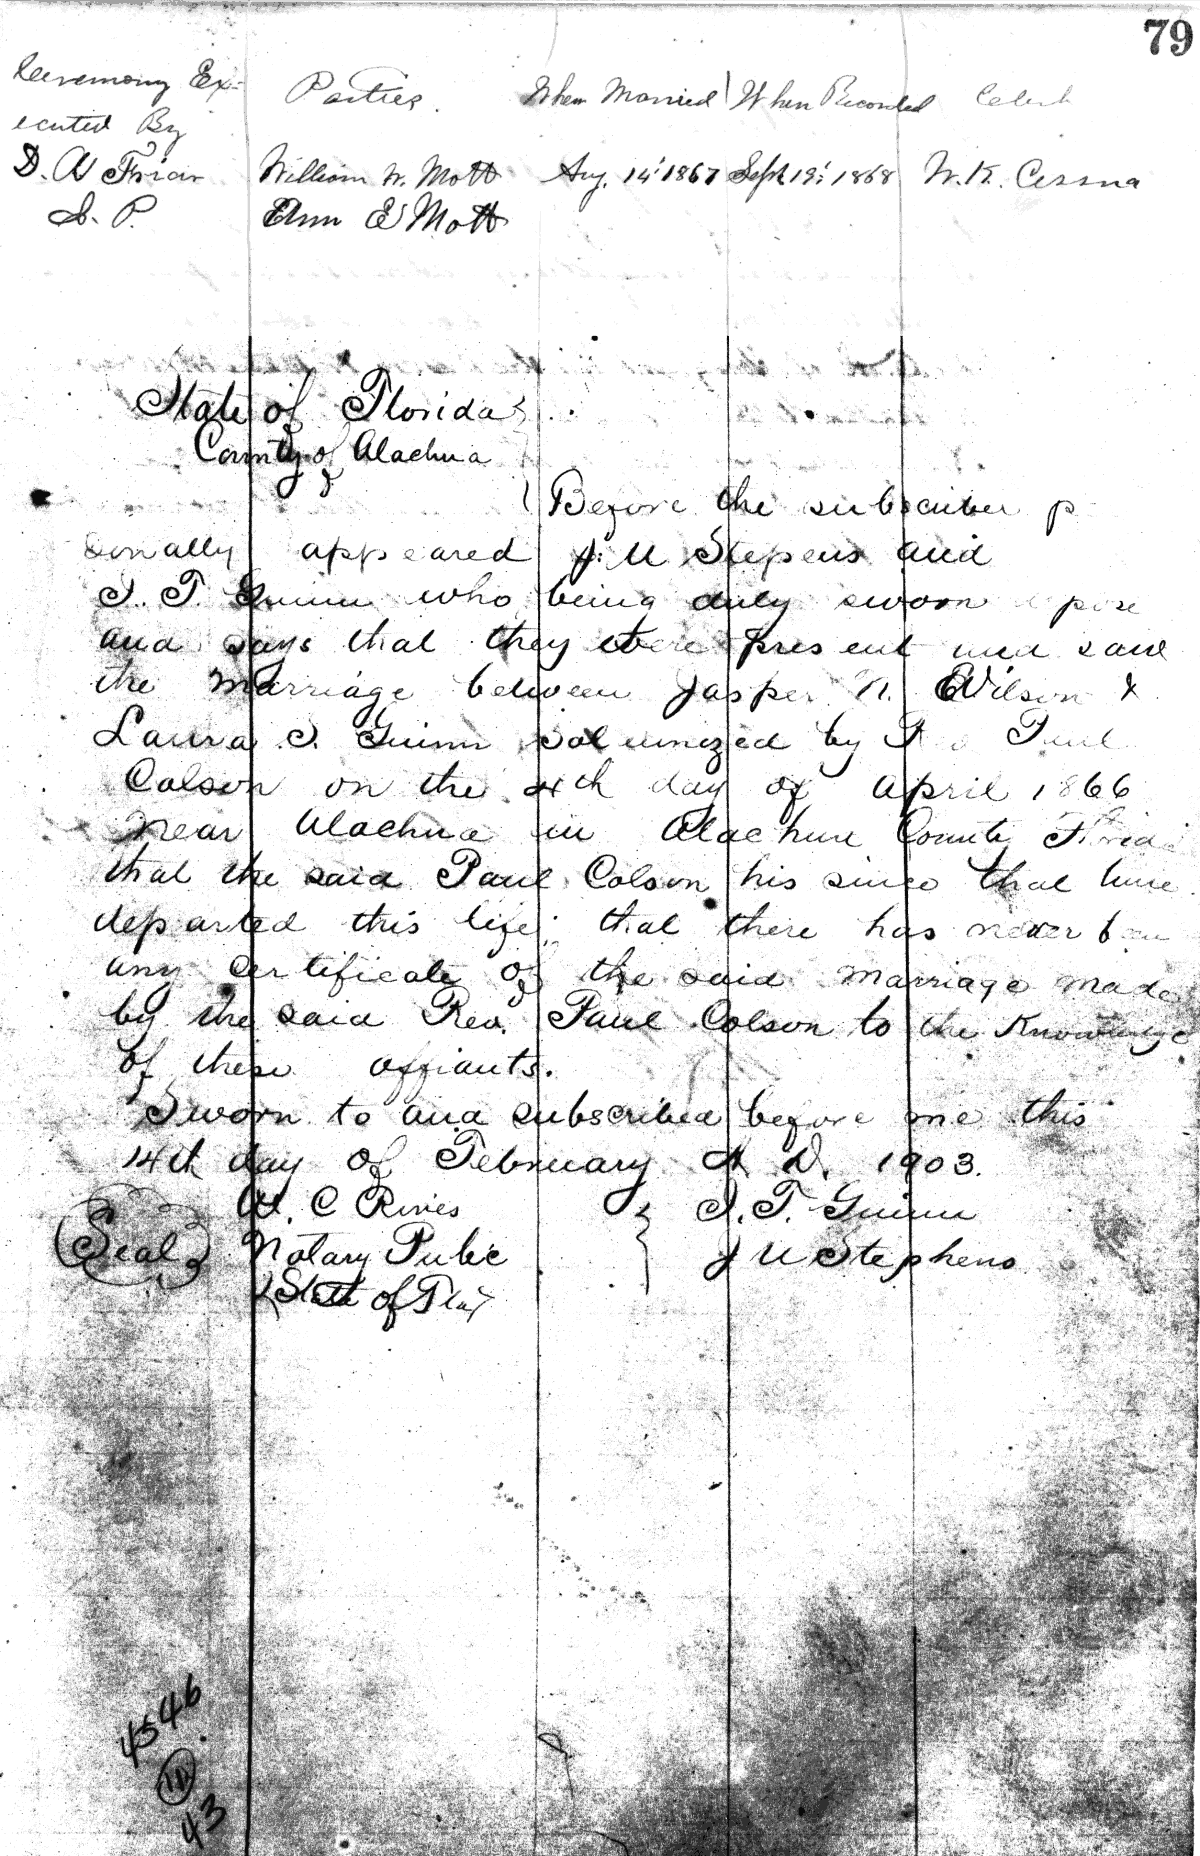 79
Ceremony Ex=
ecuted By
Parties. When Married When Recorded
D. A Friar William W. Mott Aug. 14' 1867 Sept 19': 1868 W. K. Cessna
J. P. Ann E Mott
State of Florida
County of Alachua
Before the subscriber p
sonally appeared J. U Stepens and
S. T. Guinn who being duly sworn epose
and says that they were present and saw
the Marriage between Jasper N. Wilson &
Laura S. Guinn Solemnized by Paul
Colson on the 4th day of April 1866
near Alachua in Alachua County Florida
that the said Paul Colson his since that time
departed this life; that there has never been
any certificate of the said Marriage made
by the said Rev. Paul Colson to the Knowledge
of these affiants.
Sworn to and subscribed before me this
14th day of February A D. 1903.
W. C Rives S. T. Guinn
Seal Notary Pubic J U Stephens
State of Fla
4546
43